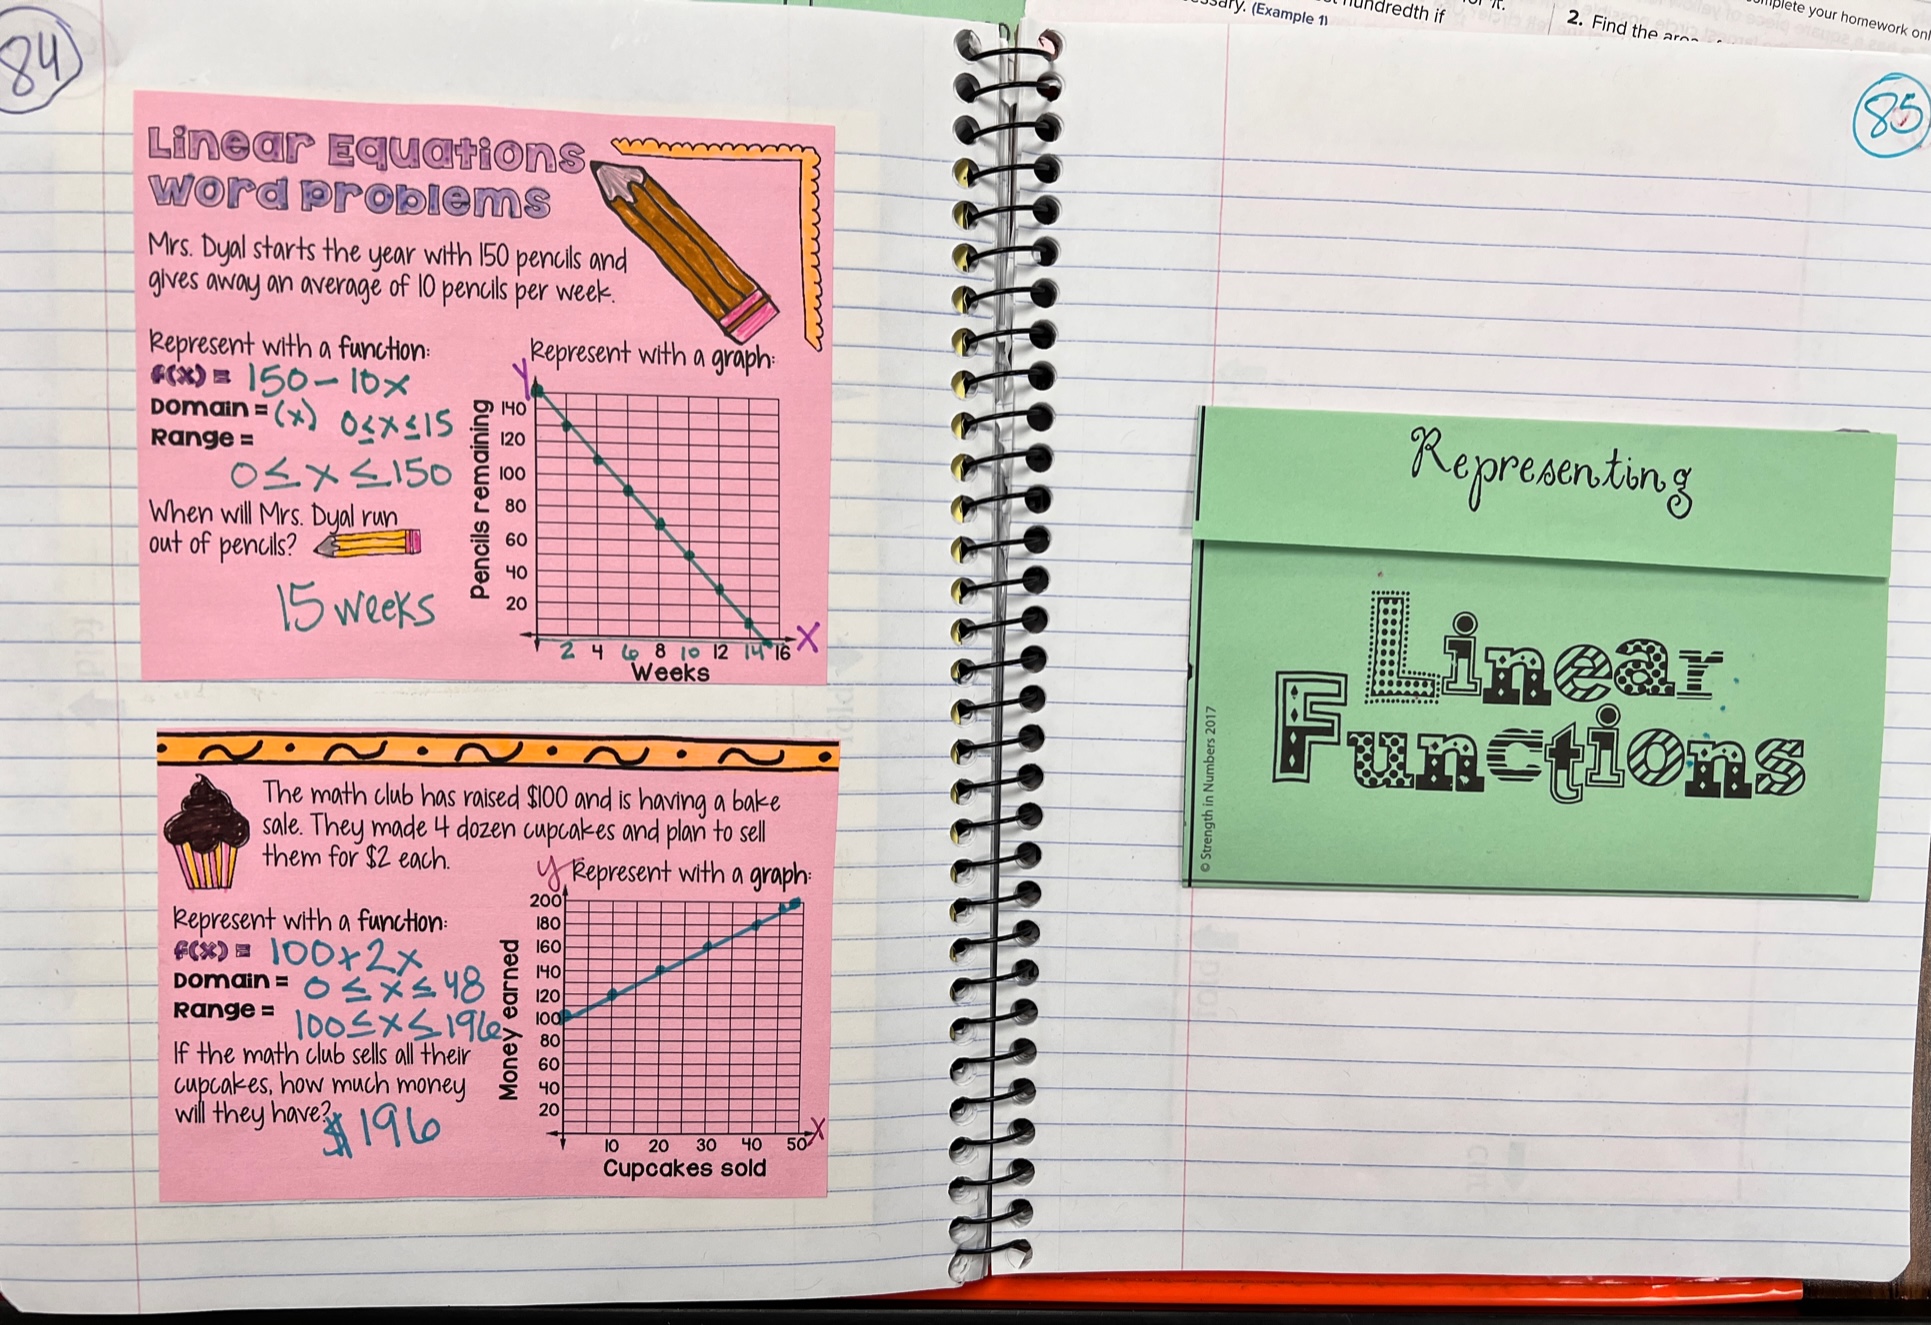 84
Linear Equations
Word Problems
Mrs. Dyal starts the year with 150 pencils and
gives away an average of 10 pencils per week.
Represent with a function:
f(x) = 150 - 10x
Domain = (x) 0≤x≤15
Range =
0 ≤ x ≤ 150
When will Mrs. Dyal run
out of pencils?
15 weeks
Represent with a graph:
Y
Pencils remaining
140
120
100
80
60
40
20
2 4 6 8 10 12 14 16 X
Weeks
The math club has raised $100 and is having a bake
sale. They made 4 dozen cupcakes and plan to sell
them for $2 each.
Represent with a function:
f(x) = 100+2x
Domain = 0 ≤ x ≤ 48
Range =
100≤x≤196
If the math club sells all their
cupcakes, how much money
will they have?
$196
y Represent with a graph:
Money earned
200
180
160
140
120
100
80
60
40
20
10 20 30 40 50 X
Cupcakes sold
(Example 1)
hundredth if
2. Find the
complete your homework
85
Representing
Linear
Functions
© Strength in Numbers 2017